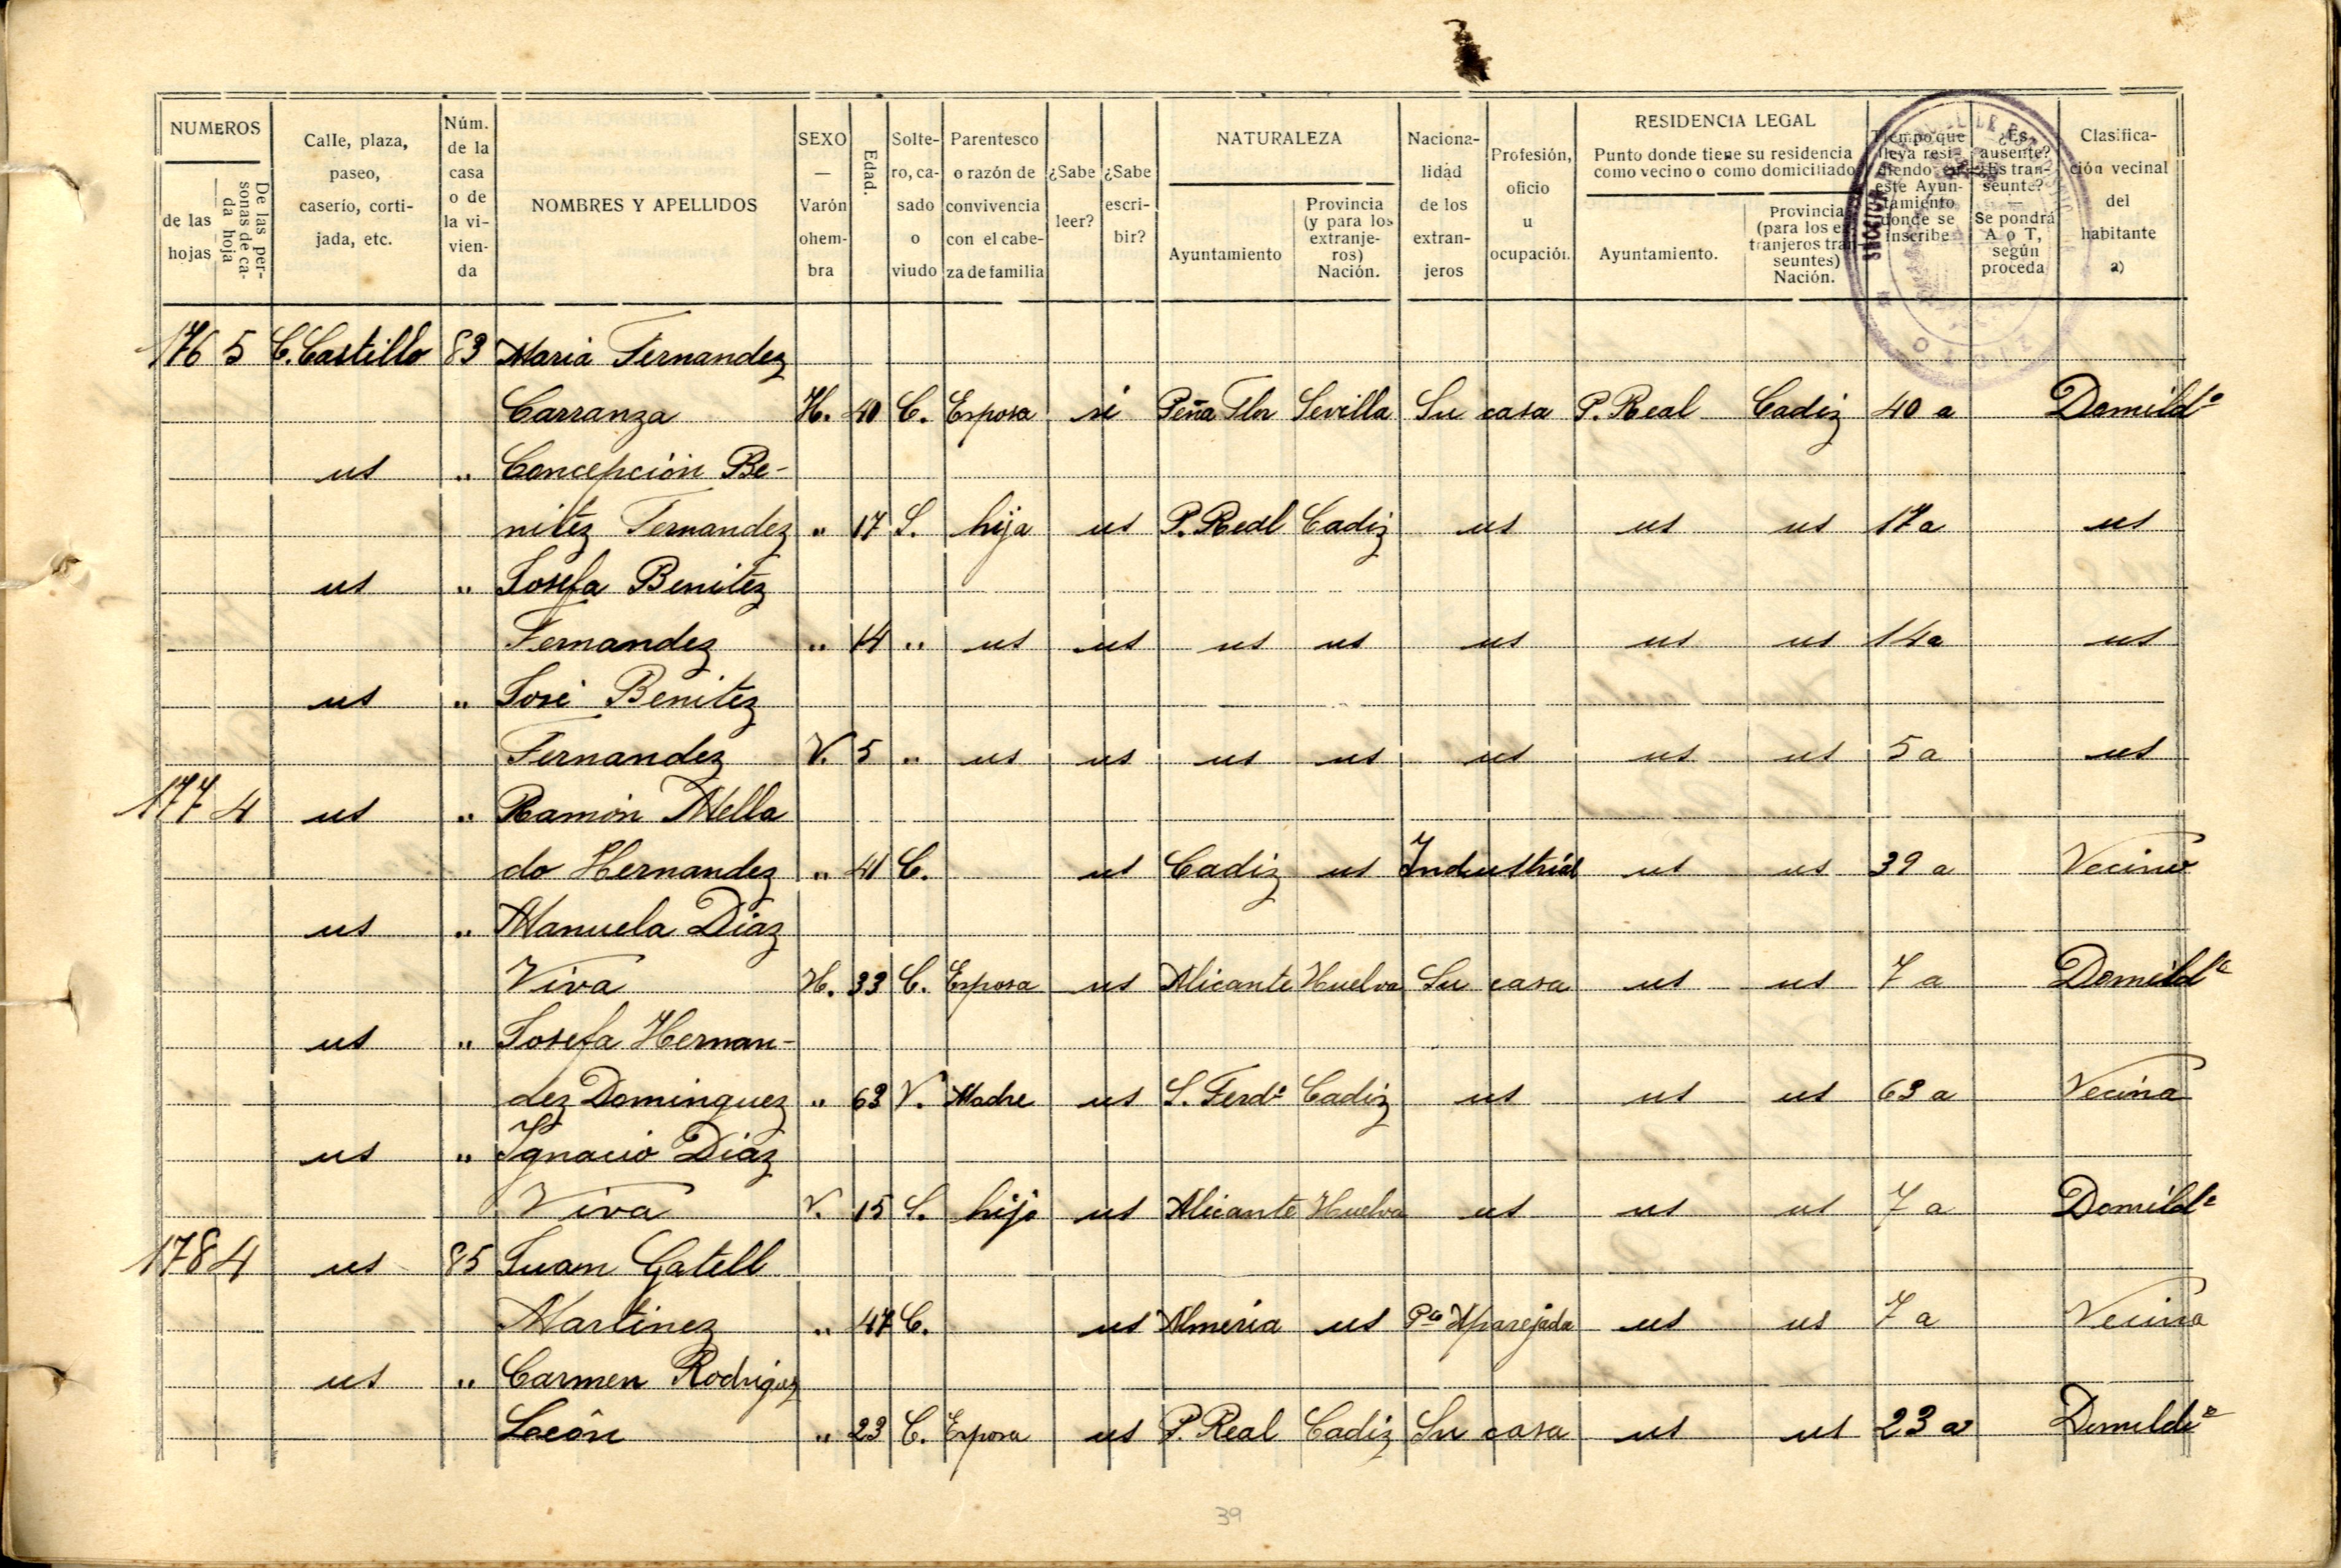 NUMEROS
de las hojas
De las personas de cada hoja
Calle, plaza, paseo, caserío, cortijada, etc.
Núm. de la casa o de la vivienda
NOMBRES Y APELLIDOS
SEXO — Varón ohembra
Edad.
Soltero, casado o viudo
Parentesco o razón de convivencia con el cabeza de familia
¿Sabe leer?
¿Sabe escribir?
NATURALEZA
Ayuntamiento
Provincia (y para los extranjeros) Nación.
Nacionalidad de los extranjeros
Profesión, oficio u ocupación.
RESIDENCIA LEGAL
Punto donde tiene su residencia como vecino o como domiciliado
Ayuntamiento.
Provincia (para los extranjeros transeuntes) Nación.
Tiempo que lleva residiendo en este Ayuntamiento donde se inscribe
¿Es ausente? ¿Es transeunte? — Se pondrá A o T, según proceda
Clasificación vecinal del habitante a)
176 5 C. Castillo 83 Maria Fernandez
Carranza H. 40 C. Esposa si Peña Flor Sevilla Su casa P. Real Cadiz 40 a Domildª
us " Concepción Be-
nitez Fernandez " 17 S. hija us P. Real Cadiz us us us 17 a us
us " Josefa Benitez
Fernandez " 14 " us us us us us us us 14 a us
us " José Benitez
Fernandez V. 5 " us us us us us us us 5 a us
177 4 us " Ramón Mella
do Hernandez " 41 C. us Cadiz us Industrial us us 39 a Vecino
us " Manuela Diaz
Viva H. 33 C. Esposa us Alicante Huelva Su casa us us 7 a Domildª
us " Josefa Hernan-
dez Dominguez " 63 V. Madre us S. Ferdº Cadiz us us us 63 a Vecina
us " Ignacio Diaz
Viva V. 15 S. hijo us Alicante Huelva us us us 7 a Domildº
178 4 us 85 Juan Gatell
Martinez " 47 C. us Almeria us Pto Aparejada us us 7 a Vecino
us " Carmen Rodriguez
León " 23 C. Esposa us P. Real Cadiz Su casa us us 23 a Domildª
39